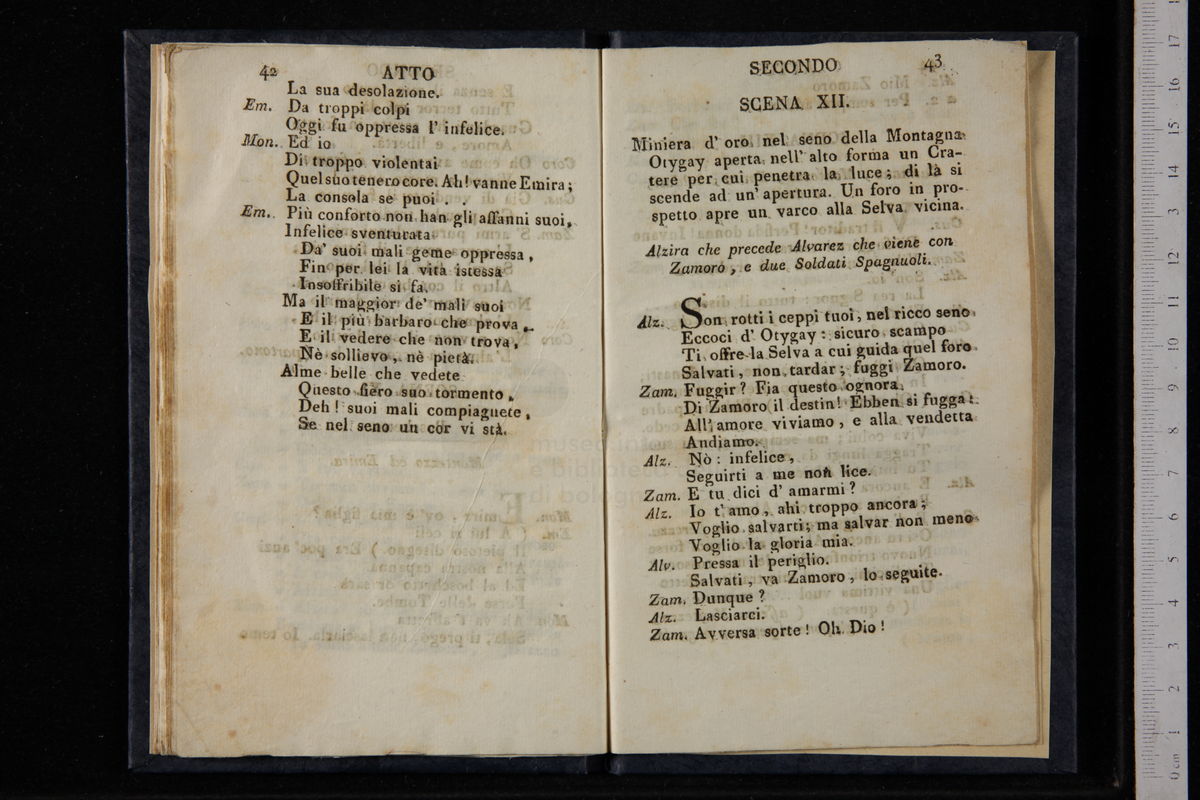 42 ATTO
La sua desolazione.
Em. Da troppi colpi
Oggi fu oppressa l' infelice.
Mon. Ed io
Di troppo violentai
Quel suo tenero core. Ah! vanne Emira;
La consola se puoi . .
Em. Più conforto non han gli affanni suoi.
Infelice sventurata
Da' suoi mali geme oppressa,
Fin per lei la vita istessa
Insoffribile si fa.
Ma il maggior de' mali suoi
E il più barbaro che prova
E il vedere che non trova,
Nè sollievo, nè pietà.
Alme belle che vedete
Questo fiero suo tormento,
Deh! suoi mali compiagnete,
Se nel seno un cor vi stà.
SECONDO 43
SCENA XII.
Miniera d' oro nel seno della Montagna
Otygay aperta nell' alto forma un Cra-
tere per cui penetra la luce; di là si
scende ad un' apertura. Un foro in pro-
spetto apre un varco alla Selva vicina.
Alzira che precede Alvarez che viene con
Zamoro, e due Soldati Spagnuoli.
Alz. Son rotti i ceppi tuoi, nel ricco seno
Eccoci d' Otygay: sicuro scampo
Ti offre la Selva a cui guida quel foro
Salvati, non tardar; fuggi Zamoro.
Zam. Fuggir? Fia questo ognora
Di Zamoro il destin! Ebben si fugga:
All' amore viviamo, e alla vendetta
Andiamo.
Alz. Nò: infelice,
Seguirti a me non lice.
Zam. E tu dici d' amarmi?
Alz. Io t' amo, ahi troppo ancora;
Voglio salvarti; ma salvar non meno
Voglio la gloria mia.
Alv. Pressa il periglio.
Salvati, va Zamoro, lo seguite.
Zam. Dunque?
Alz. Lasciarci.
Zam. Avversa sorte! Oh Dio!